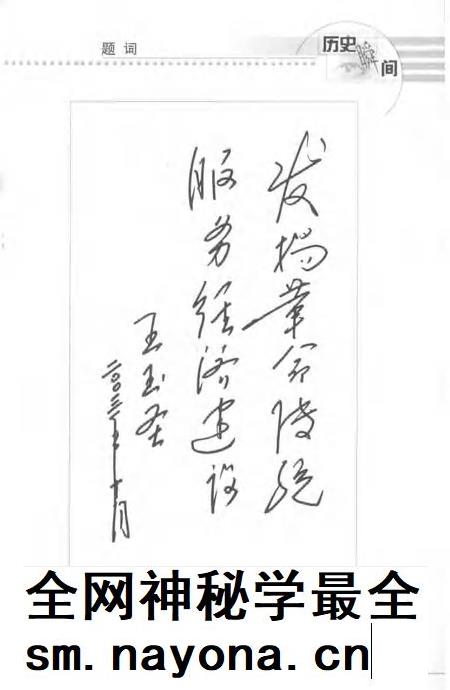 题 词
历史瞬间
发扬革命传统
服务经济建设
王玉圣
二〇〇三年十月
全网神秘学最全
sm.nayona.cn